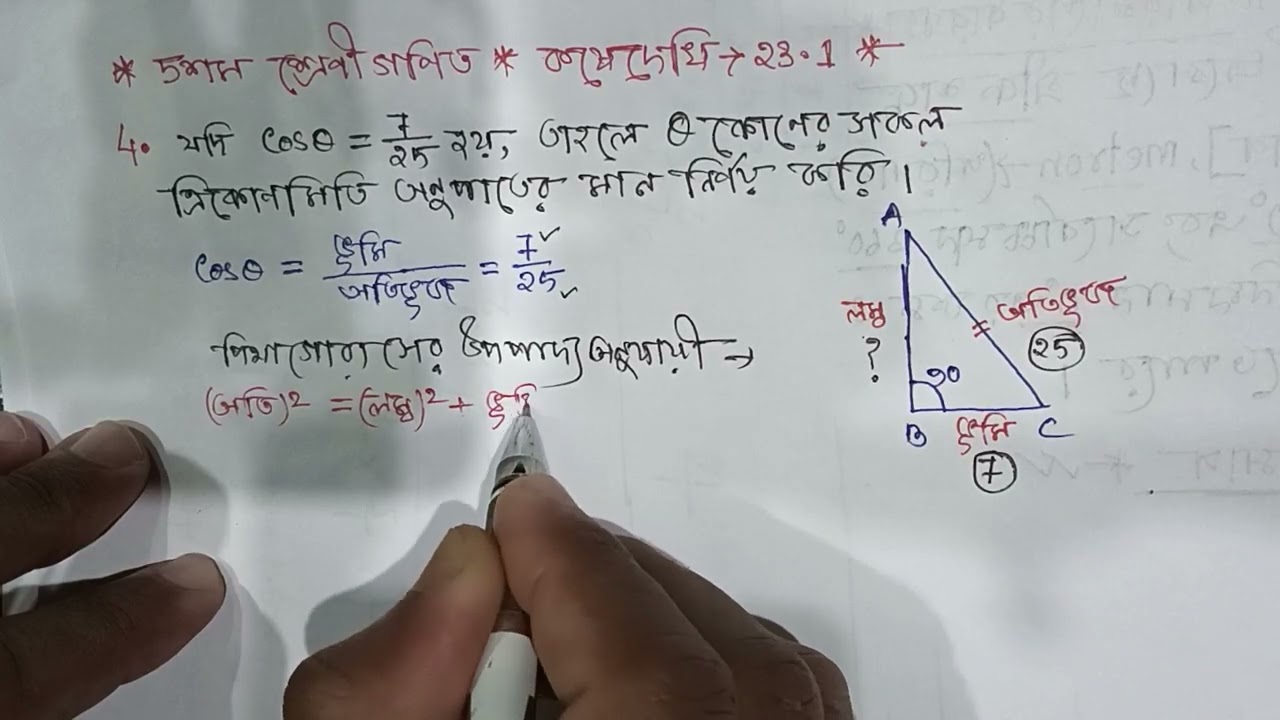 * দশম শ্রেণী গণিত * কষেদেখি → 23.1 *
4. যদি cosθ = 7/25 হয়, তাহলে θ কোনের সকল
ত্রিকোনমিতি অনুপাতের মান নির্ণয় করি।
cosθ = ভূমি/অতিভূজ = 7/25
পিথাগোরাসের উপপাদ্য অনুযায়ী →
(অতি)² = (লম্ব)² + ভূমি
A
লম্ব
?
অতিভূজ
25
90
B
ভূমি
C
7